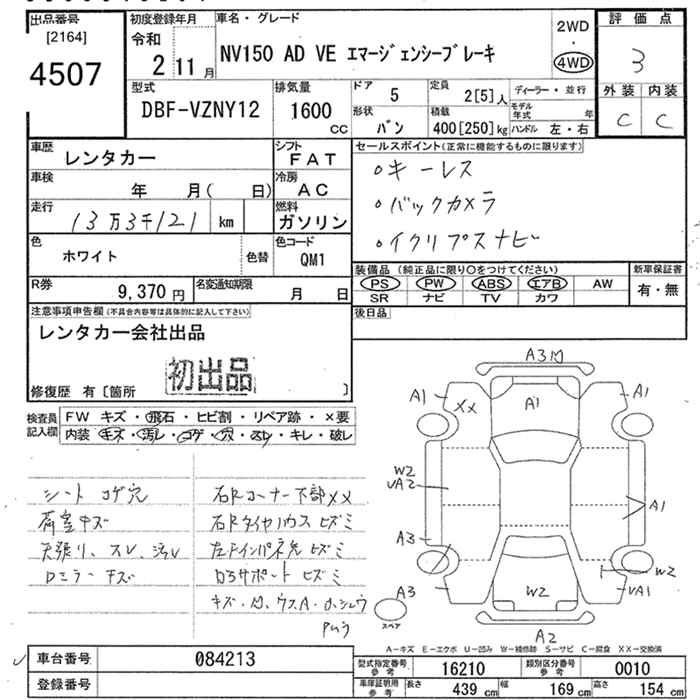 出品番号
[2164]
4507
初度登録年月
令和
2 11月
車名・グレード
NV150 AD VE エマージェンシーブレーキ
2WD
・
4WD
評価点
3
外装 内装
C C
型式
DBF-VZNY12
排気量
1600
CC
ドア 5
形状
バン
定員
2[5]人
積載
400[250]kg
ディーラー・並行
モデル年式 年
ハンドル 左・右
車歴
レンタカー
シフト
FAT
車検
年 月( 日)
冷房
AC
走行
13万3千121 km
燃料
ガソリン
色
ホワイト
色替
色コード
QM1
R券
9,370 円
名変通知期限
月 日
セールスポイント(正常に機能するものに限ります)
○キーレス
○バックカメラ
○イクリプスナビ
装備品(純正品に限り○をつけてください)
PS PW ABS エアB AW
SR ナビ TV カワ
新車保証書
有・無
後日品
注意事項申告欄(不具合内容等は具体的に記入して下さい)
レンタカー会社出品
初出品
修復歴 有〔箇所 〕
検査員記入欄
FW キズ・飛石・ヒビ割・リペア跡・×要
内装 キズ・汚れ・コゲ・穴・スレ・キレ・破レ
シート コゲ穴
荷室キズ
天張り、スレ、汚レ
ロミラーキズ
右Rコーナー下部××
右Rタイヤハウスヒズミ
左テインパネ先ヒズミ
ロラサポートヒズミ
A3凹
A1
XX
A1
A1
W2
A2
A1
A3
A3
W2
W2
A1
スペア
A2
A-キズ E-エクボ U-凹み W-補修跡 S-サビ C-腐食 XX-交換済
車台番号
084213
登録番号
型式指定番号
参考
16210
類別区分番号
参考
0010
車庫証明用
参考
長さ 439 cm 幅 169 cm 高さ 154 cm